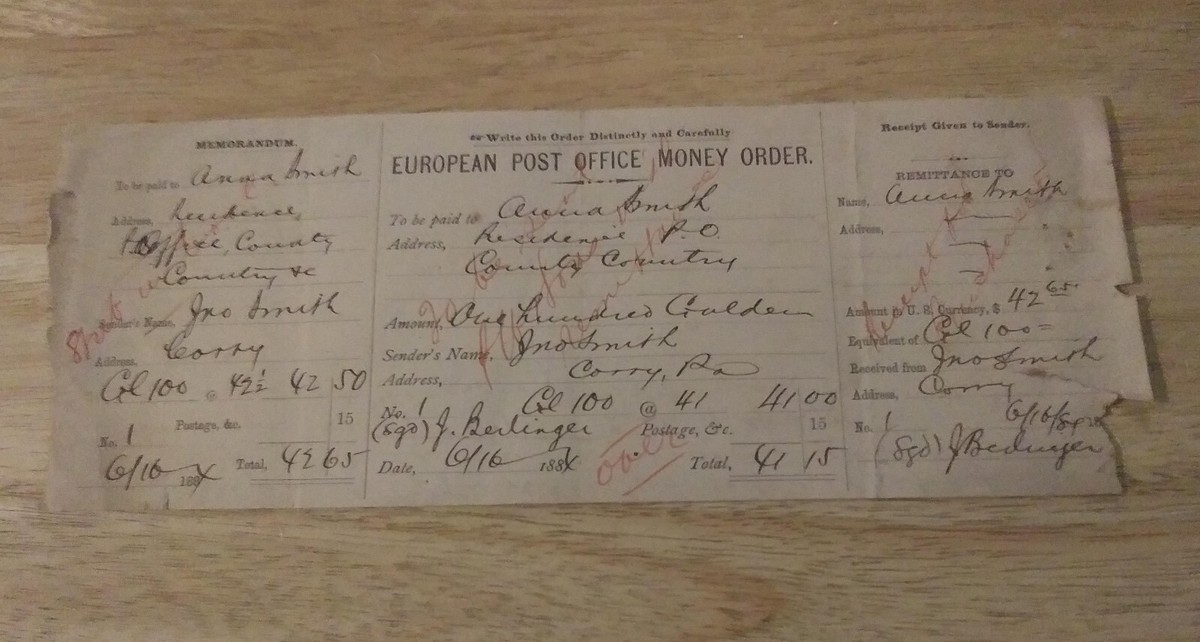 MEMORANDUM.
To be paid to Anna Smith
Address, Residence,
P Office, County
Country &c
Sender's Name, Jno Smith
Address. Corry
Gl 100 @ 42½ 42 50
No. 1 Postage, &c. 15
6/16 188 Total, 42 65
Write this Order Distinctly and Carefully
EUROPEAN POST OFFICE MONEY ORDER.
To be paid to Anna Smith
Address, Residence P.O.
County Country
Amount, One hundred Gulden
Sender's Name, Jno Smith
Address, Corry, Pa
No. 1 Gl 100 @ 41 41 00
(Sgd) J. Berlinger Postage, &c. 15
Date, 6/16 188 Total, 41 15
over
Receipt Given to Sender.
REMITTANCE TO
Name, Anna Smith
Address,
Amount in U. S. Currency, $ 42 65
Equivalent of Gl 100=
Received from Jno Smith
Address, Corry
No. 1 6/16/
(Sgd) J Berlinger